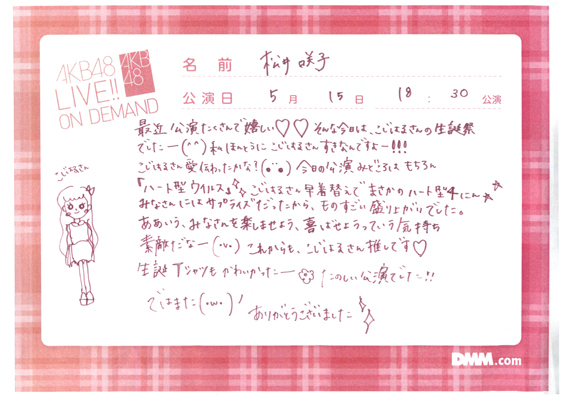 AKB48
LIVE!!
ON DEMAND
AKB
48
名前 松井咲子
公演日 5月 15日 18:30 公演
最近公演たくさんで嬉しい♡♡そんな今日は、こじはるさんの生誕祭
でしたー(^^)私ほんとうにこじはるさんすきなんですよー!!!
こじはるさん愛伝わったかな?(••)今日の公演みどころはもちろん
『ハート型ウイルス』こじはるさん早着替えでまさかのハート型4にん
みなさんにはサプライズだったから、ものすごい盛り上がりでした。
ああいう、みなさんを楽しませよう、喜ばせようっていう気持ち
素敵だなー(•v•)これからも、こじはるさん推しです♡
生誕Tシャツもかわいかったー たのしい公演でした!!
ではまた(•w•)ノ
ありがとうございました
こじはるさん
DMM.com